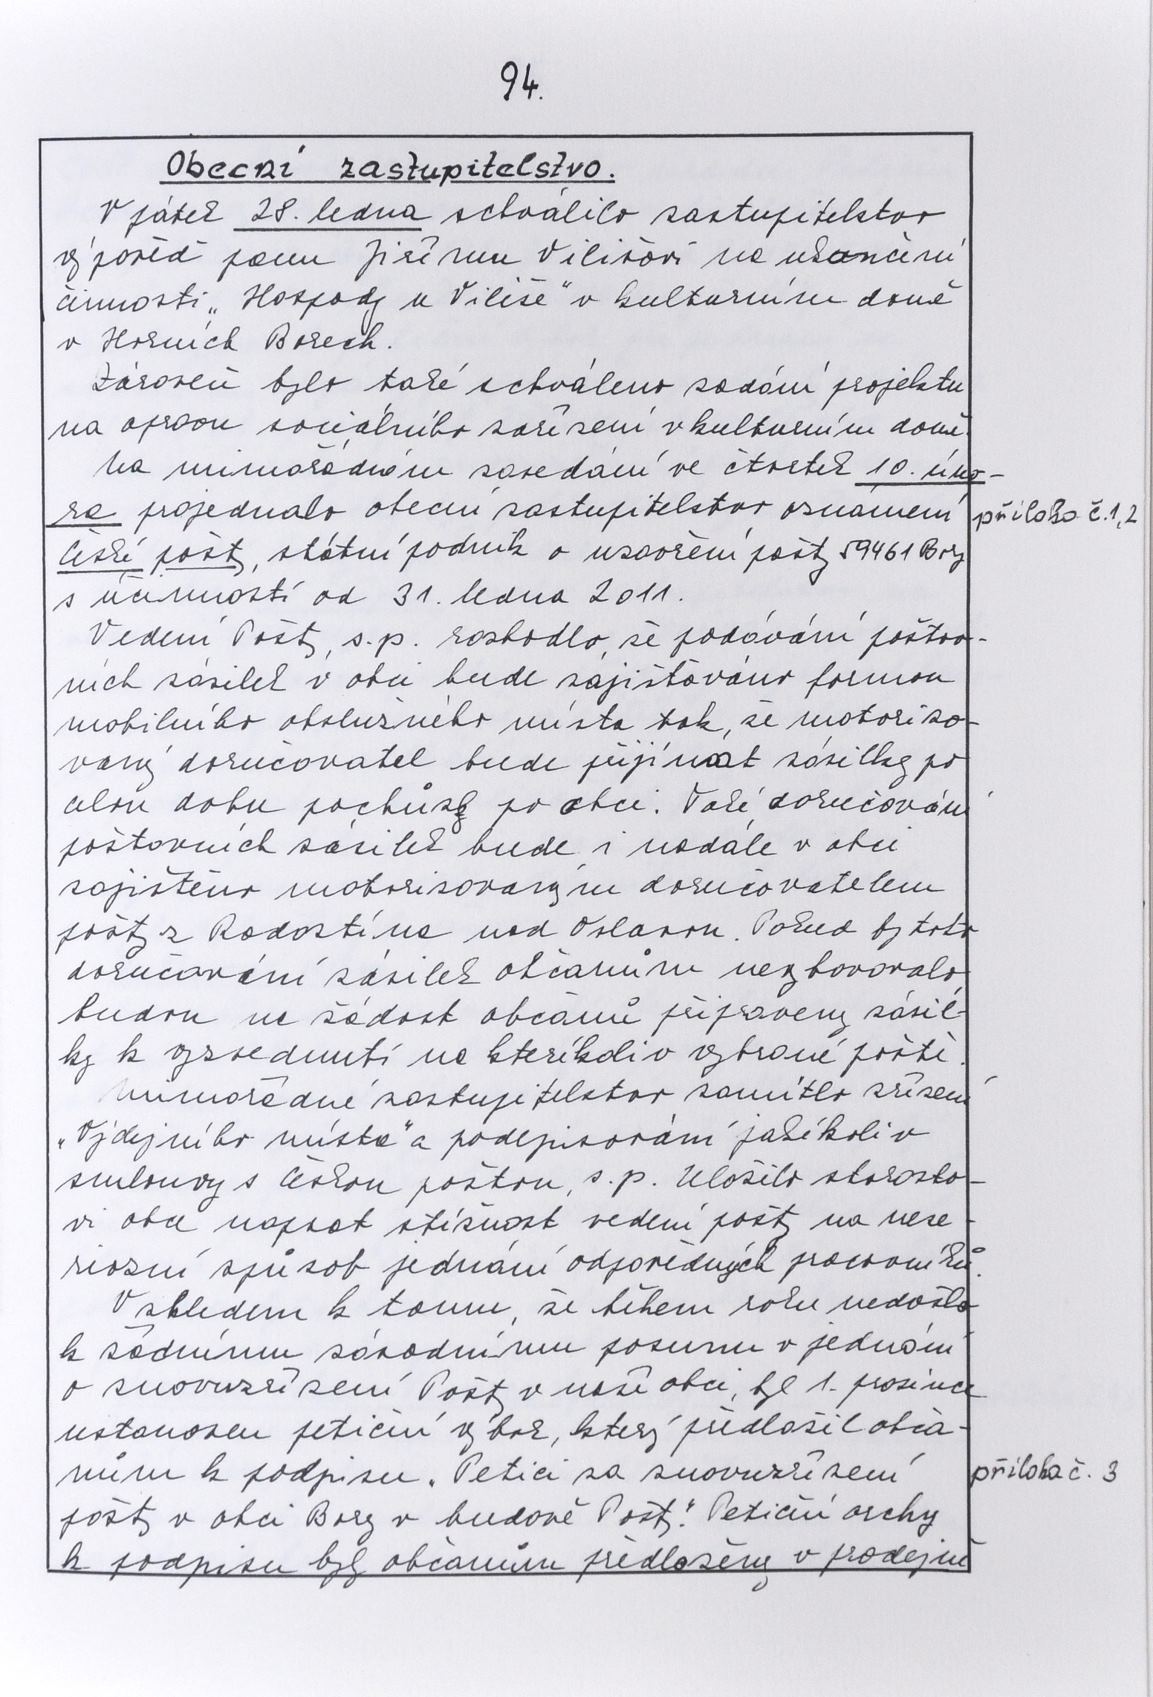 94.
Obecní zastupitelstvo.
V pátek 28. ledna schválilo zastupitelstvo
výpověď panu Jiřímu Vilišovi na ukončení
činnosti „Hospody u Viliše“ v kulturním domě
v Horních Borech.
Zároveň bylo také schváleno zadání projektu
na opravu sociálního zařízení v kulturním domě.
Na mimořádném zasedání ve čtvrtek 10. úno-
ra projednalo obecní zastupitelstvo oznámení
příloha č. 1,2
České pošty, státní podnik o uzavření pošty 59461 Bory
s účinností od 31. ledna 2011.
Vedení Pošty, s.p. rozhodlo, že podávání poštov-
ních zásilek v obci bude zajišťováno formou
mobilního obslužného místa tak, že motorizo-
vaný doručovatel bude přijímat zásilky po
celou dobu pochůzky po obci. Také doručování
poštovních zásilek bude i nadále v obci
zajištěno motorizovaným doručovatelem
pošty z Radostína nad Oslavou. Pokud by toto
doručování zásilek občanům nevyhovovalo
budou na žádost občanů připraveny zásil-
ky k vyzvednutí na kterékoliv vybrané poště.
Mimořádné zastupitelstvo zamítlo zřízení
„Výdejního místa“ a podepisování jakékoliv
smlouvy s Českou poštou, s.p. Uložilo starosto-
vi obce napsat stížnost vedení pošty na nese-
riozní způsob jednání odpovědných pracovníků.
Vzhledem k tomu, že během roku nedošlo
k žádnému zásadnímu posunu v jednání
o znovuzřízení Pošty v naší obci, byl 1. prosince
ustanoven petiční výbor, který předložil obča-
nům k podpisu „Petici za znovuzřízení
příloha č. 3
pošty v obci Bory v budově Pošty.“ Petiční archy
k podpisu byly občanům předloženy v prodejně